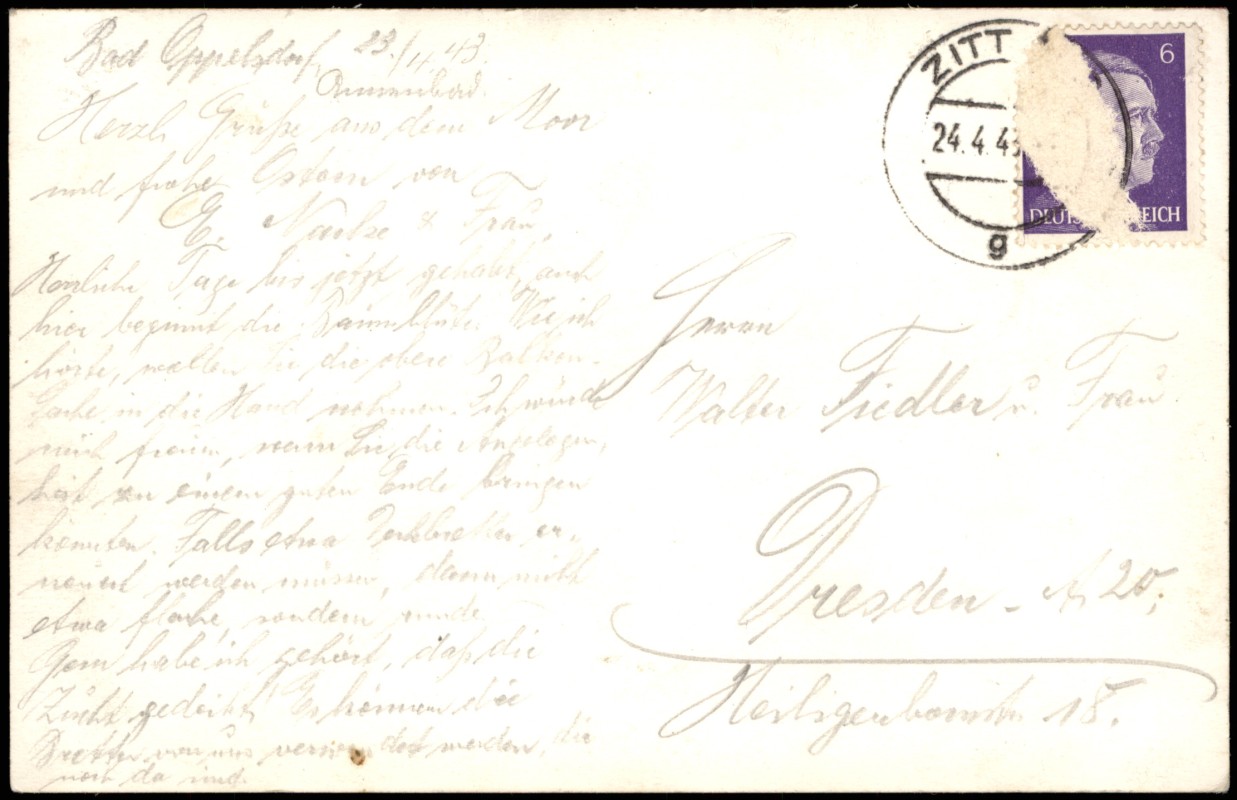 Bad Oppelsdorf, 23./4.43.
Annenbad.
Herzl. Grüße aus dem Moor
und frohe Ostern von
E. & Frau.
Herrliche Tage bis jetzt gehabt, auch
hier beginnt die Baumblüte. Wie ich
hörte, wollen Sie die obere Balken-
sache in die Hand nehmen. Ich würde
mich freuen, wenn Sie die Angelegen,
heit zu einem guten Ende bringen
könnten. Falls etwa er,
neuert werden müssen, dann nicht
etwa flache, sondern runde.
Gern habe ich gehört, daß die
Zucht gedeiht! Es können die
Bretter von uns verwendet werden, die
noch da sind.
ZITT
24.4.43
g
6
DEUTSCHES REICH
Herrn
Walter Fiedler u. Frau
Dresden - A 20,
Heiligenbornstr 18.